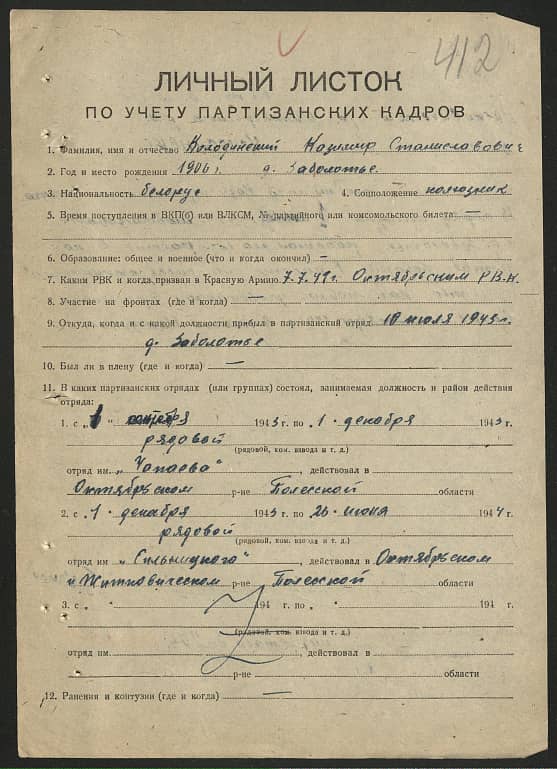 412
ЛИЧНЫЙ ЛИСТОК
ПО УЧЕТУ ПАРТИЗАНСКИХ КАДРОВ
1. Фамилия, имя и отчество Колодинский Казимир Станиславович
2. Год и место рождения 1906 г. д. Заболотье.
3. Национальность белорус 4. Соцположение колхозник
5. Время поступления в ВКП(б) или ВЛКСМ, № партийного или комсомольского билета —
6. Образование: общее и военное (что и когда окончил) —
7. Каким РВК и когда призван в Красную Армию 7.7.41г. Октябрьским Р.В.К.
8. Участие на фронтах (где и когда) —
9. Откуда, когда и с какой должности прибыл в партизанский отряд 10 июля 1943г.
д. Заболотье
10. Был ли в плену (где и когда) —
11. В каких партизанских отрядах (или группах) состоял, занимаемая должность и район действия
отряда:
1. с „ " 1943 г. по „1 · декабря 1943 г.
рядовой
(рядовой, ком. взвода и т. д.)
отряд им. „Чапаева", действовал в
Октябрьском р-не Полесской области
2. с „1 · декабря 1943 г. по 26 · июня 1944 г.
рядовой
(рядовой, ком. взвода и т. д.)
отряд им „Сильницкого", действовал в Октябрьском
и Житковическом р-не Полесской области
3. с „ " 194 г. по „ " 194 г.
(рядовой, ком. взвода и т. д.)
отряд им. , действовал в
р-не области
12. Ранения и контузии (где и когда) —